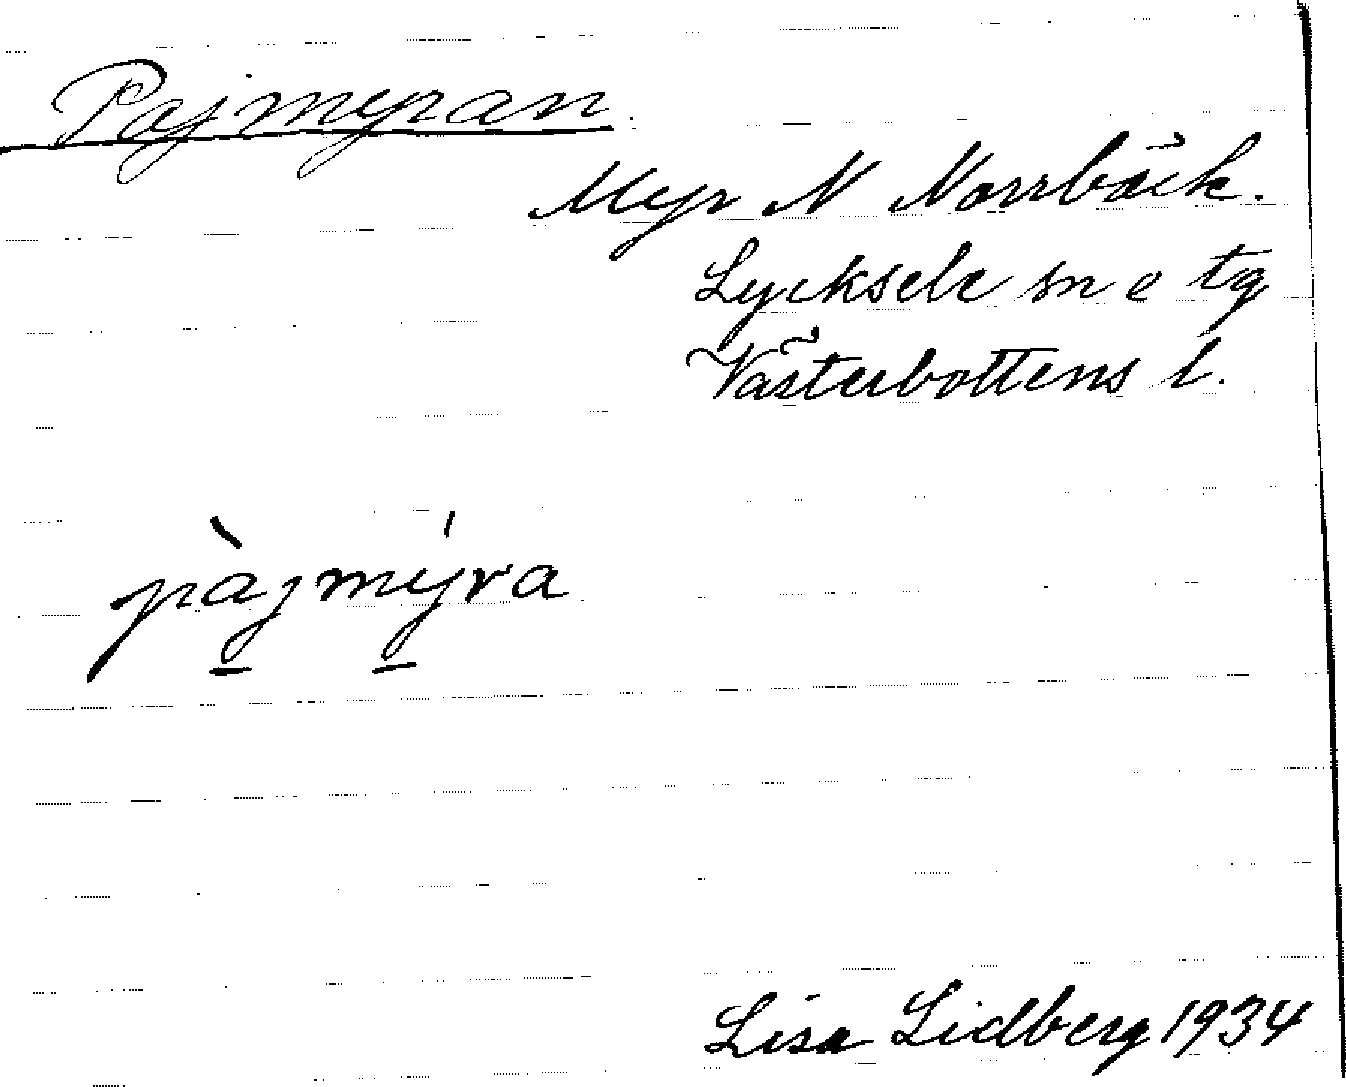 Pajmyran
Myr N Norrbäck.
Lycksele sn o tg
Västerbottens l.
pàjmýra
Lisa Lidberg 1934